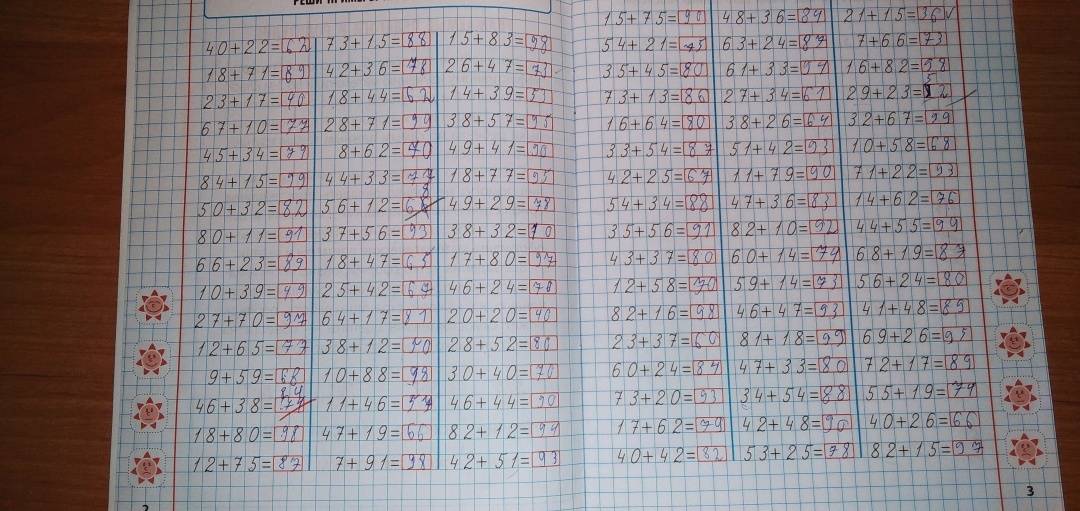 РЕШИ
40+22=62 73+15=88 15+83=98
18+71=89 42+36=78 26+47=73
23+17=40 18+44=62 14+39=53
67+10=77 28+71=99 38+57=95
45+34=79 8+62=70 49+41=90
84+15=99 44+33=77 18+77=95
50+32=82 56+12=68 49+29=78
80+11=91 37+56=93 38+32=70
66+23=89 18+47=65 17+80=97
10+39=49 25+42=67 46+24=70
27+70=97 64+17=81 20+20=40
12+65=77 38+12= 28+52=80
9+59=68 10+88=98 30+40=70
46+38=84 11+46=57 46+44=90
18+80=98 47+19=66 82+12=94
12+75=87 7+91=98 42+51=93
2
15+75=90 48+36=84 21+15=36
54+21=75 63+24=87 7+66=73
35+45=80 61+33=94 16+82=98
73+13=86 27+34=61 29+23=52
16+64=80 38+26=64 32+67=99
33+54=87 51+42=93 10+58=68
42+25=67 11+79=90 71+22=93
54+34=88 47+36=83 14+62=76
35+56=91 82+10=92 44+55=99
43+37=80 60+14=74 68+19=87
12+58=70 59+14=73 56+24=80
82+16=98 46+47=93 41+48=89
23+37=60 81+18=99 69+26=95
60+24=84 47+33=80 72+17=89
73+20=93 34+54=88 55+19=74
17+62=79 42+48=90 40+26=66
40+42=82 53+25=78 82+15=97
3